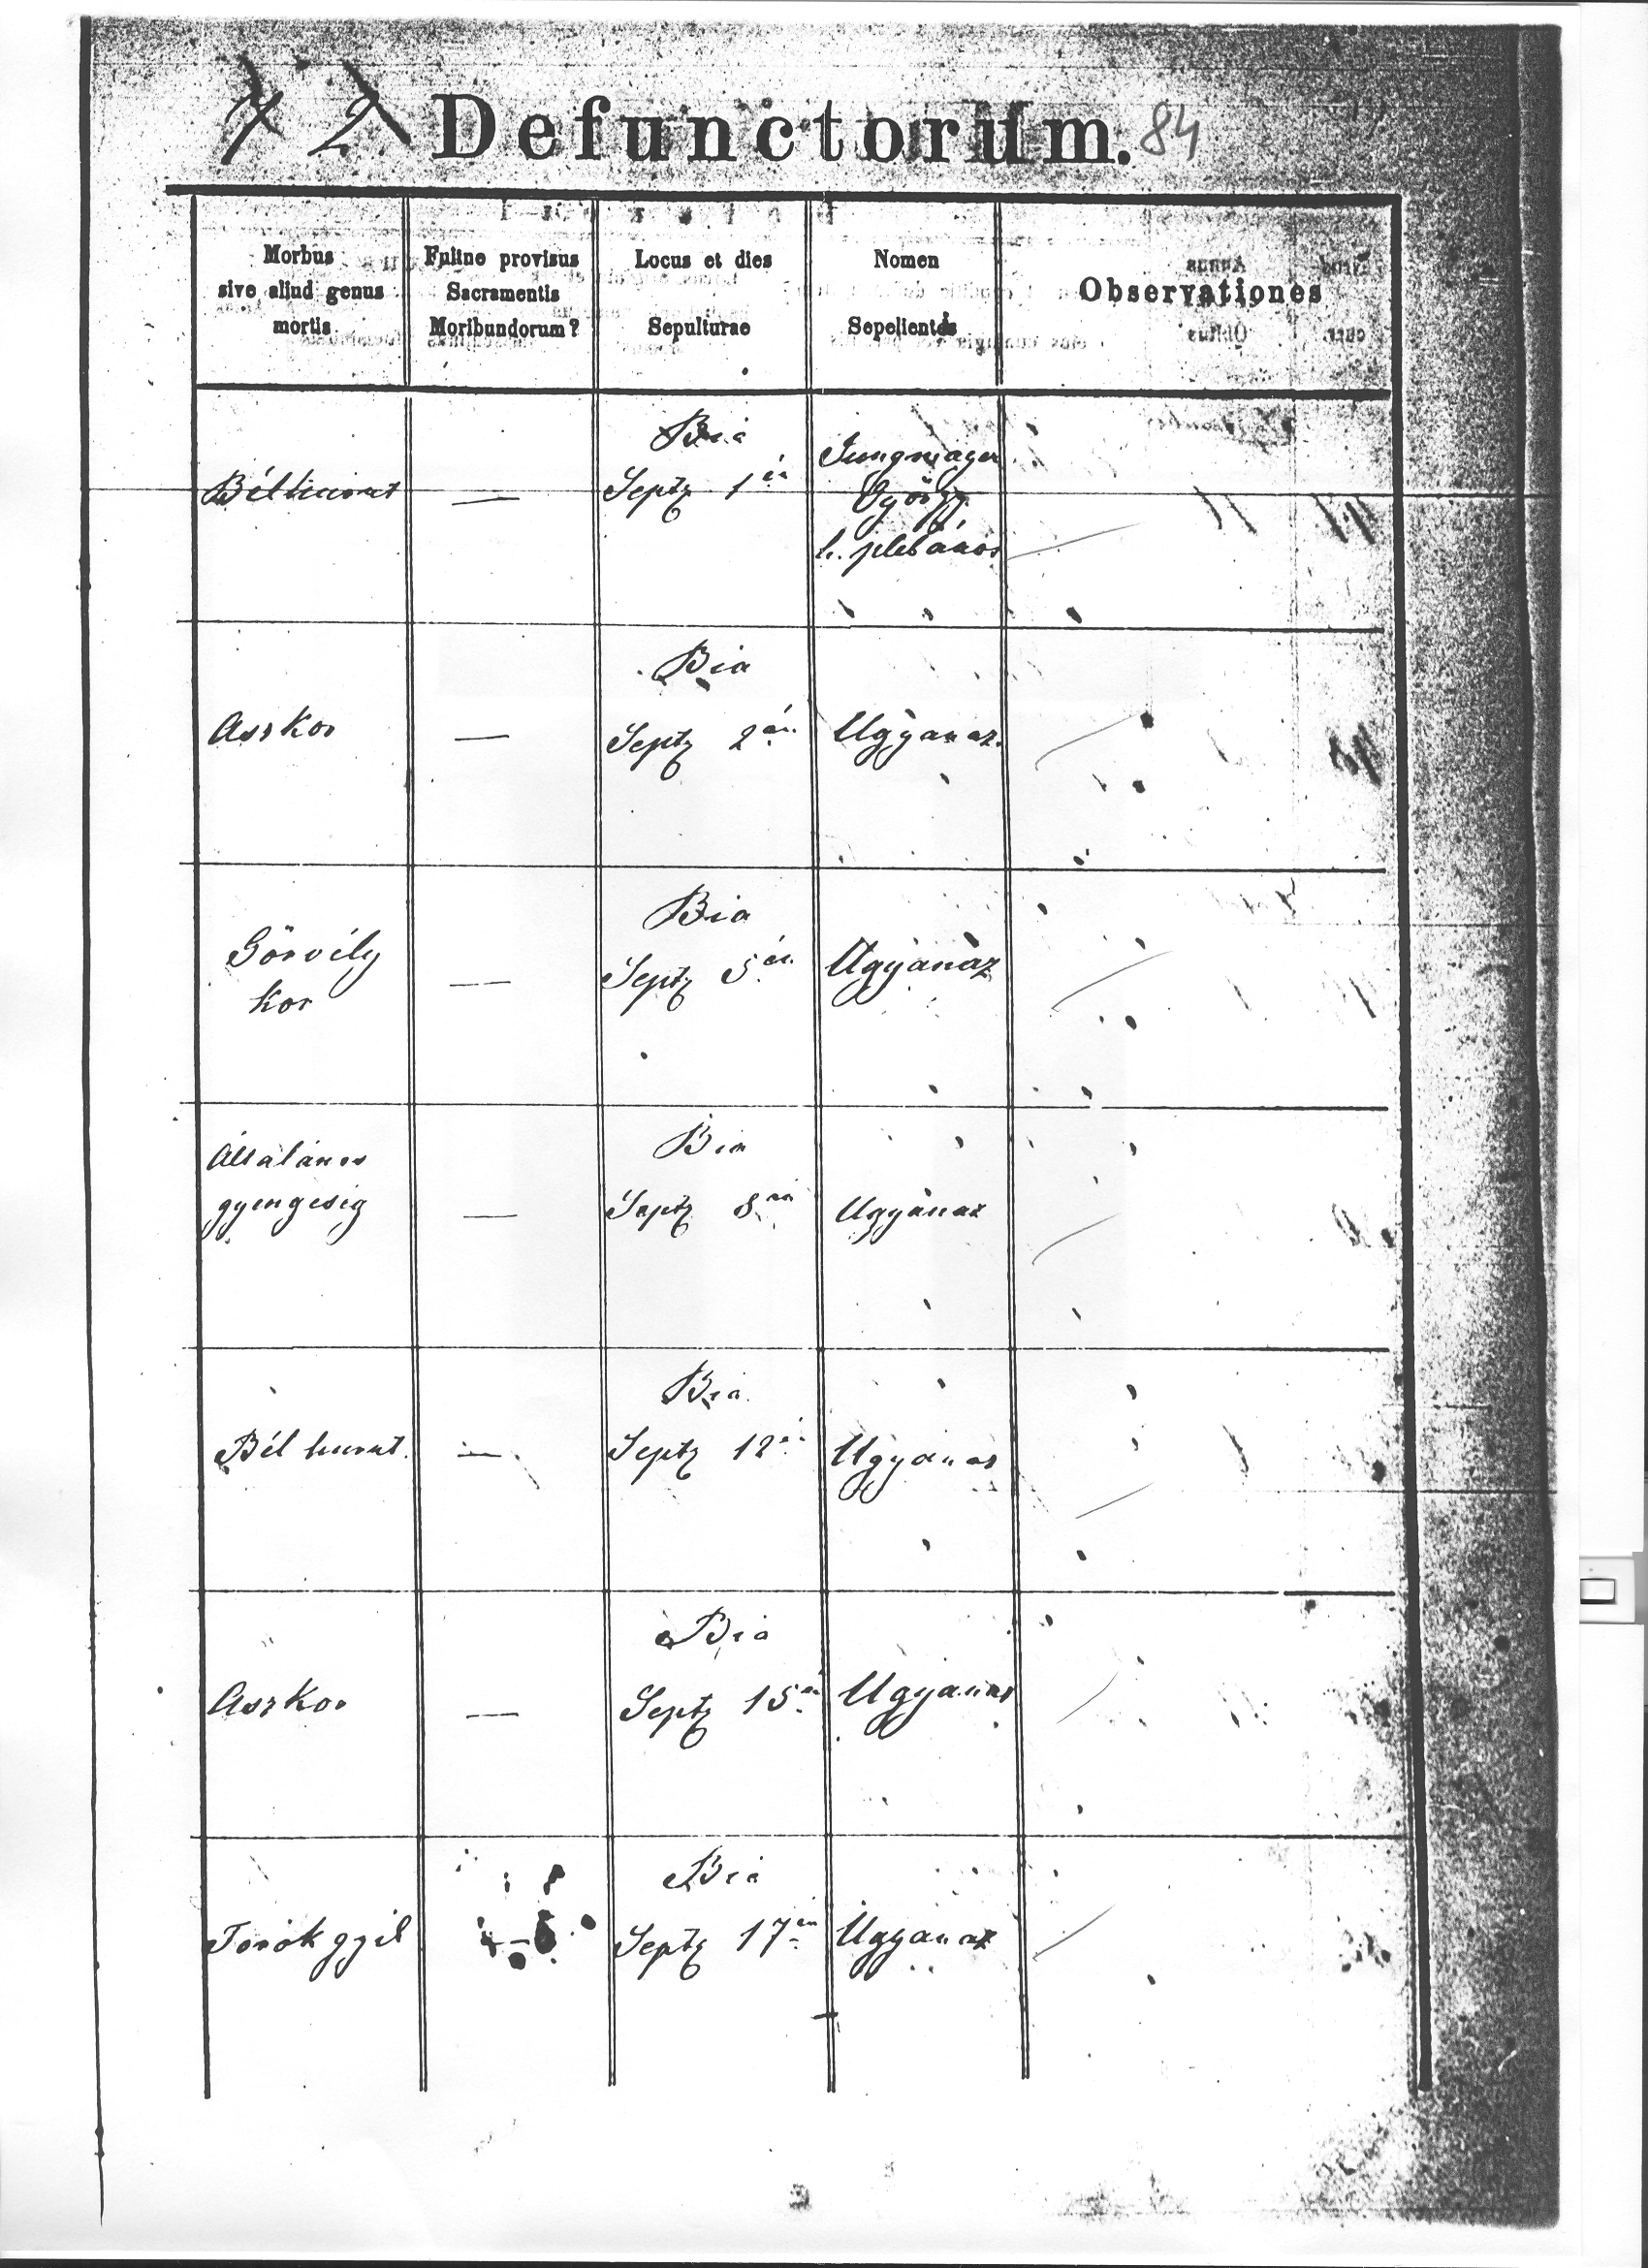 72 Defunctorum. 84
Morbus
sive aliud genus
mortis
Fuitne provisus
Sacramentis
Moribundorum?
Locus et dies
Sepulturae
Nomen
Sepelientis
Observationes
Bélhurut
—
Bia
Septb 1 én
Jungmayer
György
h. plebános
Aszkor
—
Bia
Septb 2 án
Ugyanaz.
Görvély
kor
—
Bia
Septb 5 én
Ugyanaz
Általános
gyengeség
—
Bia
Septb 8 án
Ugyanaz
Bél hurut.
—
Bia
Septb 12 én
Ugyanaz
Aszkor
—
Bia
Septb 15 én
Ugyanaz
Torokgyík
—
Bia
Septb 17 én
Ugyanaz